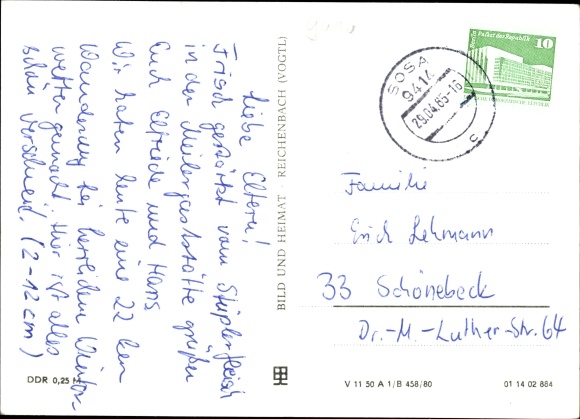 Liebe Eltern!
Frisch gestärkt vom Stüplerfleisch
in der Meilergaststätte grüßen
Euch Elfriede und Hans
Wir haben heute eine 22 km
Wanderung bei herrlichem Winter-
wetter gemacht. Hier ist alles
verschneid. (2-12 cm)
DDR 0,25 M
BILD UND HEIMAT · REICHENBACH (VOGTL)
Berlin Palast der Republik
10
SOSA
9414
29.04.85-16
c
Familie
Erich Lehmann
33 Schönebeck
Dr.-M.-Luther-Str. 64
V 11 50 A 1/B 458/80
01 14 02 884